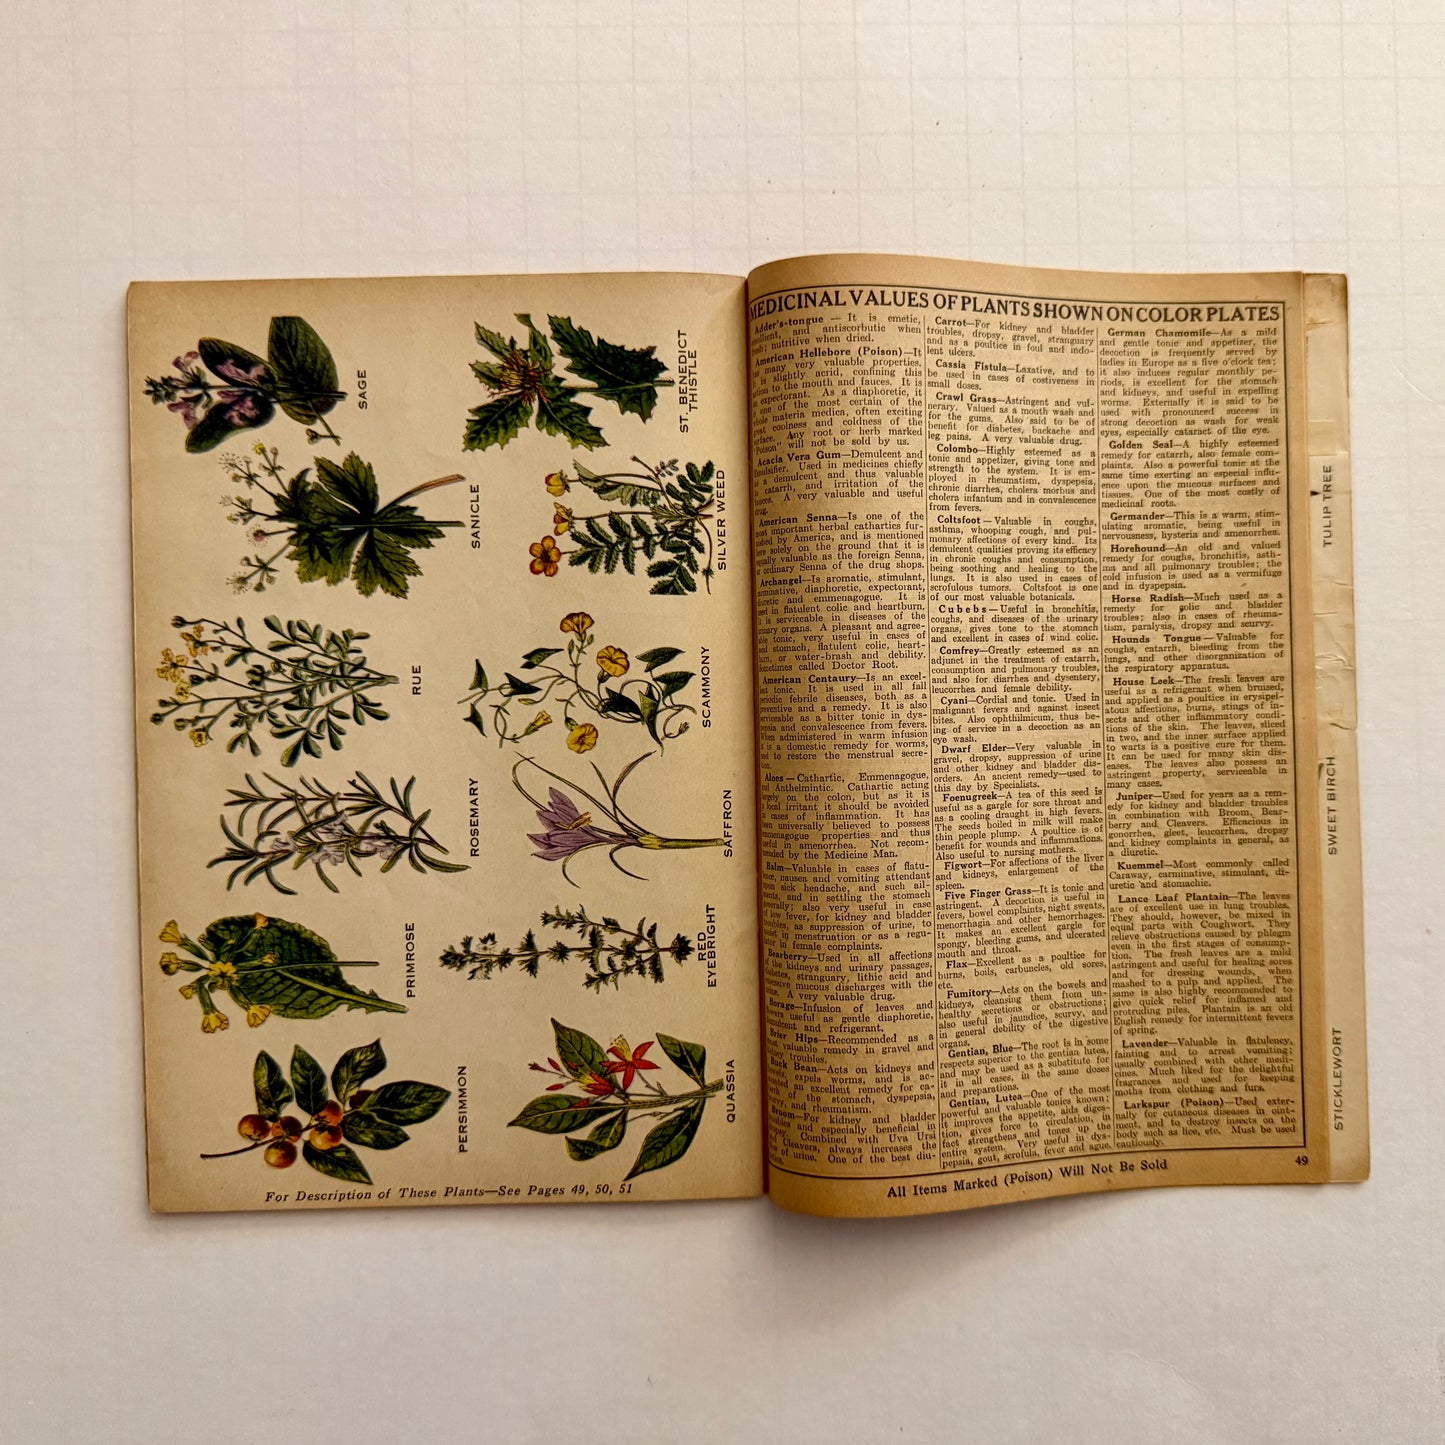 SAGE
ST. BENEDICT
THISTLE
SANICLE
SILVER WEED
RUE
SCAMMONY
ROSEMARY
SAFFRON
PRIMROSE
RED
EYEBRIGHT
PERSIMMON
QUASSIA
For Description of These Plants—See Pages 49, 50, 51
MEDICINAL VALUES OF PLANTS SHOWN ON COLOR PLATES
Adder's-tongue — It is emetic,
emollient, and antiscorbutic when
fresh; nutritive when dried.
American Hellebore (Poison)—It
has many very valuable properties,
It is slightly acrid, confining this
action to the mouth and fauces. It is
an expectorant. As a diaphoretic, it
is one of the most certain of the
whole materia medica, often exciting
great coolness and coldness of the
surface. Any root or herb marked
"Poison" will not be sold by us.
Acacia Vera Gum—Demulcent and
Emulsifier. Used in medicines chiefly
as a demulcent and thus valuable
in catarrh, and irritation of the
fauces. A very valuable and useful
drug.
American Senna—Is one of the
most important herbal cathartics fur-
nished by America, and is mentioned
here solely on the ground that it is
equally valuable as the foreign Senna,
or ordinary Senna of the drug shops.
Archangel—Is aromatic, stimulant,
carminative, diaphoretic, expectorant,
diuretic and emmenagogue. It is
used in flatulent colic and heartburn.
It is serviceable in diseases of the
urinary organs. A pleasant and agree-
able tonic, very useful in cases of
bad stomach, flatulent colic, heart-
burn, or water-brash and debility.
Sometimes called Doctor Root.
American Centaury—Is an excel-
lent tonic. It is used in all fall
periodic febrile diseases, both as a
preventive and a remedy. It is also
serviceable as a bitter tonic in dys-
pepsia and convalescence from fevers.
When administered in warm infusion
it is a domestic remedy for worms,
and to restore the menstrual secre-
tion.
Aloes — Cathartic, Emmenagogue,
and Anthelmintic. Cathartic acting
largely on the colon, but as it is
a local irritant it should be avoided
in cases of inflammation. It has
been universally believed to possess
emmenagogue properties and thus
useful in amenorrhea. Not recom-
mended by the Medicine Man.
Balm—Valuable in cases of flatu-
lence, nausea and vomiting attendant
upon sick headache, and such ail-
ments, and in settling the stomach
generally; also very useful in case
of low fever, for kidney and bladder
troubles, as suppression of urine, to
assist in menstruation or as a regu-
lator in female complaints.
Bearberry—Used in all affections
of the kidneys and urinary passages,
diabetes, stranguary, lithic acid and
excessive mucous discharges with the
urine. A very valuable drug.
Borage—Infusion of leaves and
flowers useful as gentle diaphoretic,
demulcent and refrigerant.
Brier Hips—Recommended as a
most valuable remedy in gravel and
kidney troubles.
Buck Bean—Acts on kidneys and
bowels, expels worms, and is ac-
counted an excellent remedy for ca-
tarrh of the stomach, dyspepsia,
scurvy, and rheumatism.
Broom—For kidney and bladder
troubles and especially beneficial in
dropsy. Combined with Uva Ursi
and Cleavers, always increases the
flow of urine. One of the best diu-
retics.
Carrot—For kidney and bladder
troubles, dropsy, gravel, stranguary
and as a poultice in foul and indo-
lent ulcers.
Cassia Fistula—Laxative, and to
be used in cases of costiveness in
small doses.
Crawl Grass—Astringent and vul-
nerary. Valued as a mouth wash and
for the gums. Also said to be of
benefit for diabetes, backache and
leg pains. A very valuable drug.
Colombo—Highly esteemed as a
tonic and appetizer, giving tone and
strength to the system. It is em-
ployed in rheumatism, dyspepsia,
chronic diarrhea, cholera morbus and
cholera infantum and in convalescence
from fevers.
Coltsfoot — Valuable in coughs,
asthma, whooping cough, and pul-
monary affections of every kind. Its
demulcent qualities proving its efficacy
in chronic coughs and consumption,
being soothing and healing to the
lungs. It is also used in cases of
scrofulous tumors. Coltsfoot is one
of our most valuable botanicals.
Cubebs — Useful in bronchitis,
coughs, and diseases of the urinary
organs, gives tone to the stomach
and excellent in cases of wind colic.
Comfrey—Greatly esteemed as an
adjunct in the treatment of catarrh,
consumption and pulmonary troubles,
and also for diarrhea and dysentery,
leucorrhea and female debility.
Cyani—Cordial and tonic. Used in
malignant fevers and against insect
bites. Also ophthilmicum, thus be-
ing of service in a decoction as an
eye wash.
Dwarf Elder—Very valuable in
gravel, dropsy, suppression of urine
and other kidney and bladder dis-
orders. An ancient remedy—used to
this day by Specialists.
Foenugreek—A tea of this seed is
useful as a gargle for sore throat and
as a cooling draught in high fevers.
The seeds boiled in milk will make
thin people plump. A poultice is of
benefit for wounds and inflammations.
Also useful to nursing mothers.
Figwort—For affections of the liver
and kidneys, enlargement of the
spleen.
Five Finger Grass—It is tonic and
astringent. A decoction is useful in
fevers, bowel complaints, night sweats,
menorrhagia and other hemorrhages.
It makes an excellent gargle for
spongy, bleeding gums, and ulcerated
mouth and throat.
Flax—Excellent as a poultice for
burns, boils, carbuncles, old sores,
etc.
Fumitory—Acts on the bowels and
kidneys, cleansing them from un-
healthy secretions or obstructions;
also useful in jaundice, scurvy, and
in general debility of the digestive
organs.
Gentian, Blue—The root is in some
respects superior to the gentian lutea,
and may be used as a substitute for
it in all cases, in the same doses
and preparations.
Gentian, Lutea—One of the most
powerful and valuable tonics known;
it improves the appetite, aids diges-
tion, gives force to circulation, in
fact strengthens and tones up the
entire system. Very useful in dys-
pepsia, gout, scrofula, fever and ague.
German Chamomile—As a mild
and gentle tonic and appetizer, the
decoction is frequently served by
ladies in Europe as a five o'clock tea;
it also induces regular monthly pe-
riods, is excellent for the stomach
and kidneys, and useful in expelling
worms. Externally it is said to be
used with pronounced success in
strong decoction as wash for weak
eyes, especially cataract of the eye.
Golden Seal—A highly esteemed
remedy for catarrh, also female com-
plaints. Also a powerful tonic at the
same time exerting an especial influ-
ence upon the mucous surfaces and
tissues. One of the most costly of
medicinal roots.
Germander—This is a warm, stim-
ulating aromatic, being useful in
nervousness, hysteria and amenorrhea.
Horehound—An old and valued
remedy for coughs, bronchitis, asth-
ma and all pulmonary troubles; the
cold infusion is used as a vermifuge
and in dyspepsia.
Horse Radish—Much used as a
remedy for colic and bladder
troubles; also in cases of rheuma-
tism, paralysis, dropsy and scurvy.
Hounds Tongue — Valuable for
coughs, catarrh, bleeding from the
lungs, and other disorganization of
the respiratory apparatus.
House Leek—The fresh leaves are
useful as a refrigerant when bruised,
and applied as a poultice in erysipel-
atous affections, burns, stings of in-
sects and other inflammatory condi-
tions of the skin. The leaves, sliced
in two, and the inner surface applied
to warts is a positive cure for them.
It can be used for many skin dis-
eases. The leaves also possess an
astringent property, serviceable in
many cases.
Juniper—Used for years as a rem-
edy for kidney and bladder troubles
in combination with Broom, Bear-
berry and Cleavers. Efficacious in
gonorrhea, gleet, leucorrhea, dropsy
and kidney complaints in general, as
a diuretic.
Kuemmel—Most commonly called
Caraway, carminative, stimulant, di-
uretic and stomachic.
Lance Leaf Plantain—The leaves
are of excellent use in lung troubles.
They should, however, be mixed in
equal parts with Coughwort. They
relieve obstructions caused by phlegm
even in the first stages of consump-
tion. The fresh leaves are a mild
astringent and useful for healing sores
and for dressing wounds, when
mashed to a pulp and applied. The
same is also highly recommended to
give quick relief for inflamed and
protruding piles. Plantain is an old
English remedy for intermittent fevers
of spring.
Lavender—Valuable in flatulency,
fainting and to arrest vomiting;
usually combined with other medi-
cines. Much liked for the delightful
fragrances and used for keeping
moths from clothing and furs.
Larkspur (Poison)—Used exter-
nally for cutaneous diseases in oint-
ment, and to destroy insects on the
body such as lice, etc. Must be used
cautiously.
All Items Marked (Poison) Will Not Be Sold
49
TULIP TREE
SWEET BIRCH
STICKLEWORT